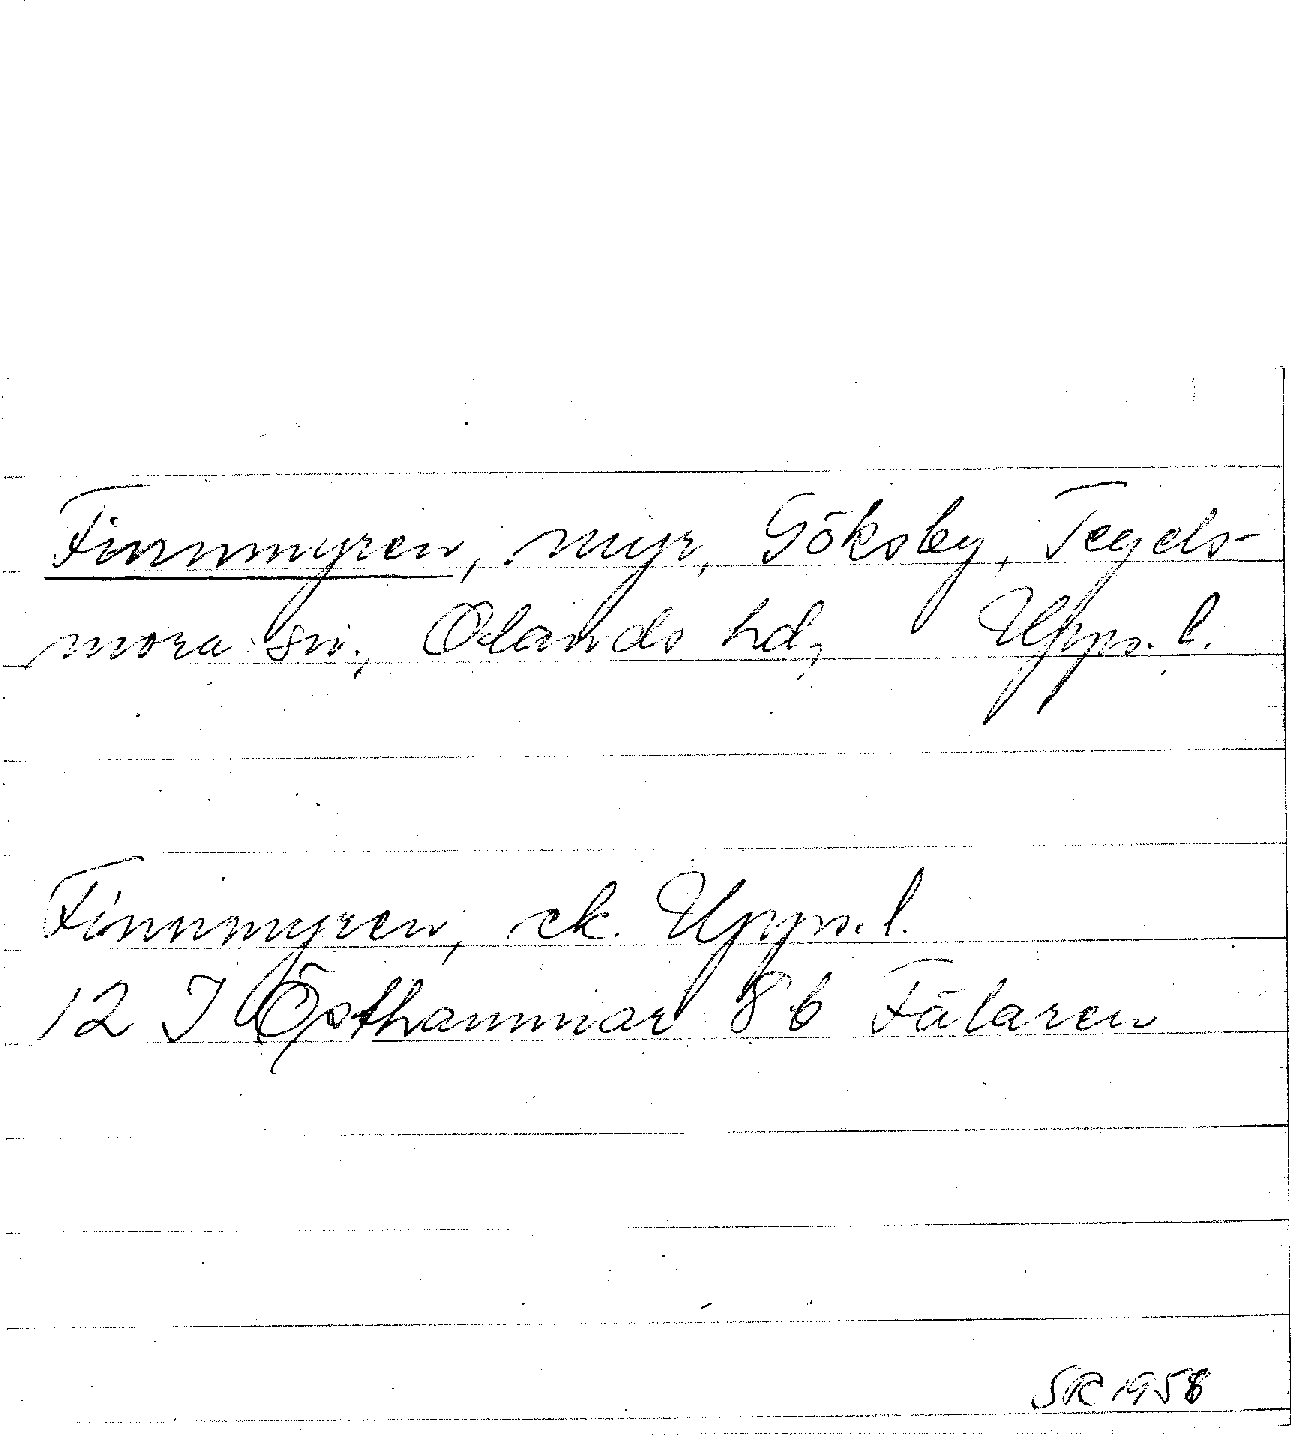 Finnmyren, myr, Göksby, Tegels-
mora sn., Olands hd, Upps. l.
Finnmyren, ek. Upps. l.
12 I Östhammar 8b Fälaren
SR 1958